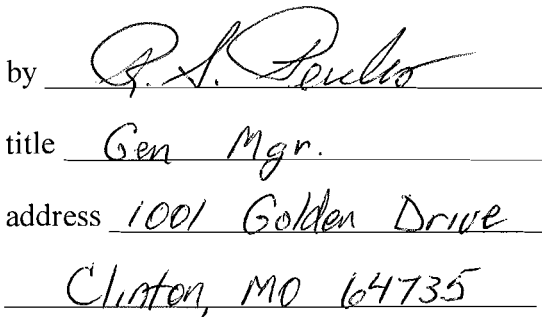 by R. S.
title Gen Mgr.
address 1001 Golden Drive
Clinton, MO 64735